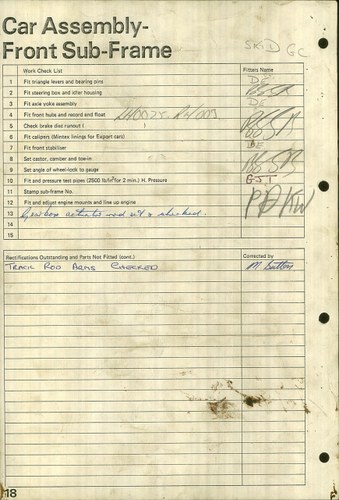 Car Assembly-
Front Sub-Frame
SKID GC
Work Check List
Fitters Name
1 Fit triangle levers and bearing pins DE
2 Fit steering box and idler housing
3 Fit axle yoke assembly DE
4 Fit front hubs and record end float
5 Check brake disc runout (   )
6 Fit calipers (Mintex linings for Export cars)
7 Fit front stabiliser DE
8 Set castor, camber and toe-in
9 Set angle of wheel-lock to gauge
10 Fit and pressure test pipes (2500 lb/in² for 2 min.) H. Pressure GJT
11 Stamp sub-frame No.
12 Fit and adjust engine mounts and line up engine
13 Gearbox actuator rod set & checked.
14
15
Rectifications Outstanding and Parts Not Fitted (cont.)
Corrected by
TRACK ROD ARMS CHECKED M. Sutton
18